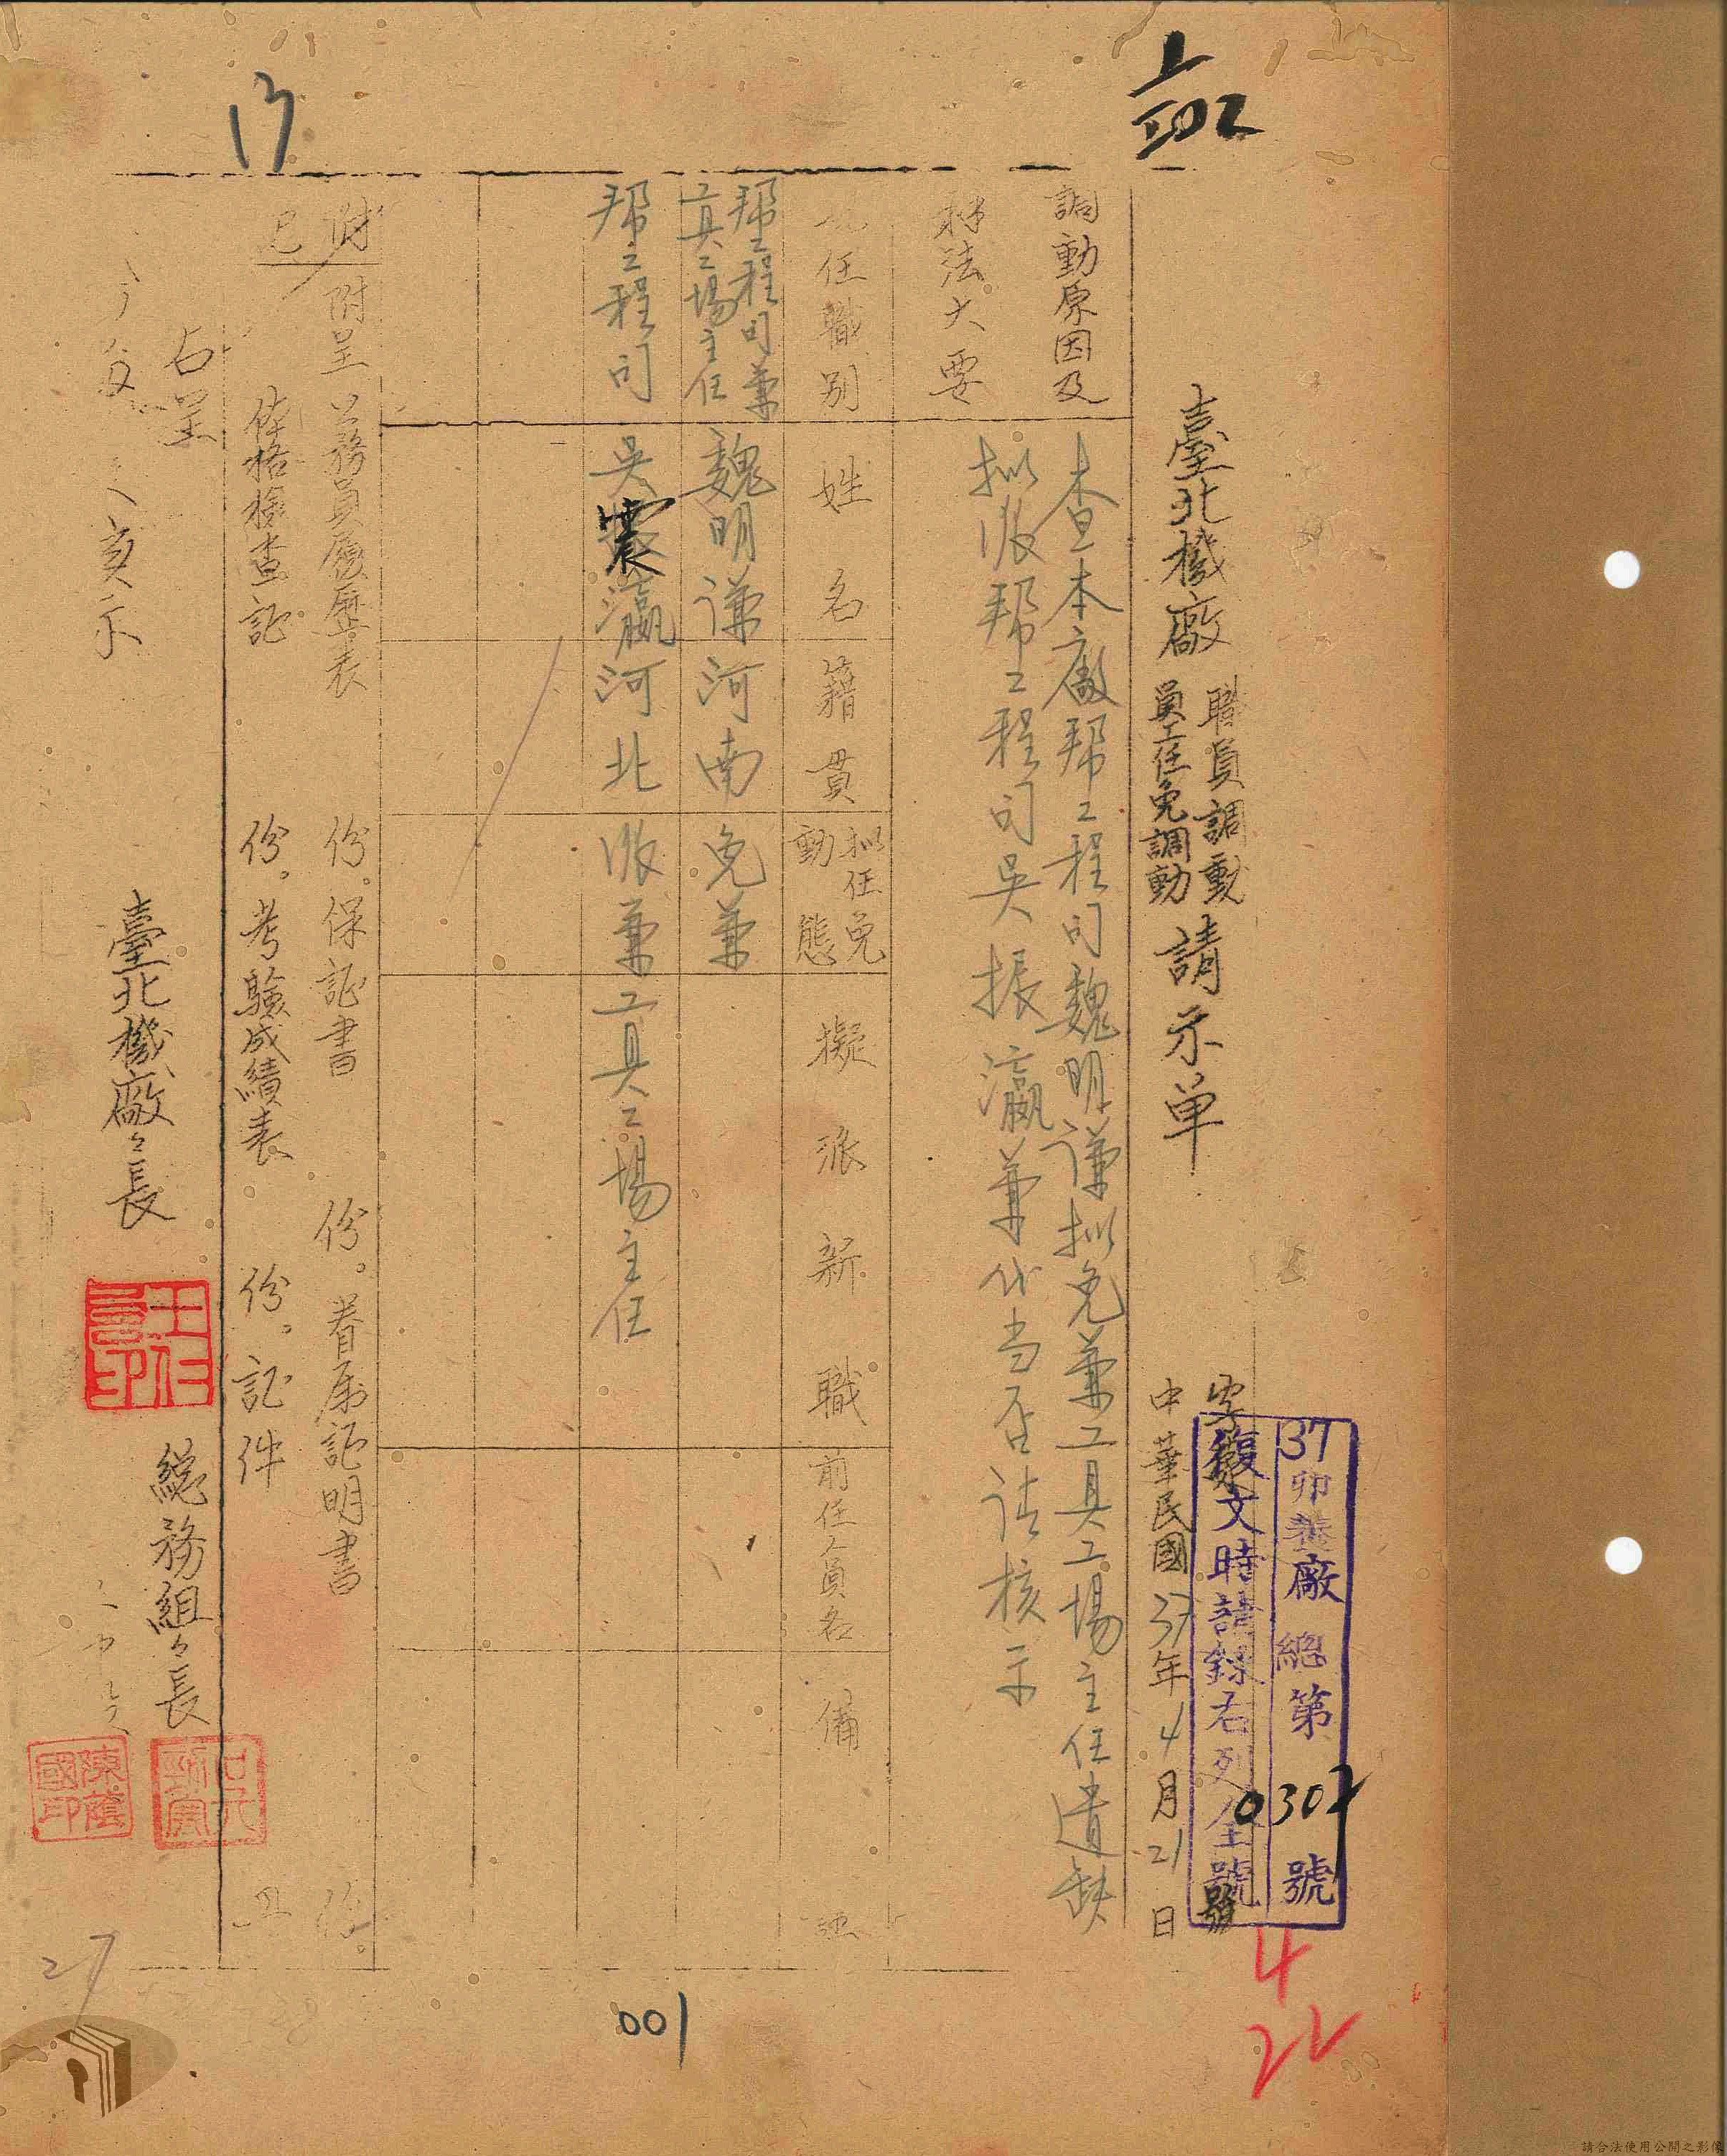 上
302
13
臺北機廠
職員調動
員工任免調動
請示单
字第 號
中華民國37年4月21日
37卯養廠總第0302號
復文時請錄右列全號
調動原因及
辦法大要
查本廠帮工程司魏明谦拟免兼工具工場主任遺缺
拟派帮工程司吳振瀛兼代当否请核示
任職別
姓名
籍貫
拟任免
動態
擬派新職
前任人員名
備
帮工程司兼
工具工場主任
魏明谦
河南
免兼
帮工程司
吳震瀛
河北
派兼工具工場主任
附呈 公務員履歷表 份。保証書 份。眷属証明書 份。
体格檢查証 份。考驗成績表 份。証件
右呈
臺北機廠々長
王仁印
總務組々長
陳蔭國印
27
001
4
22
請合法使用公開之影像